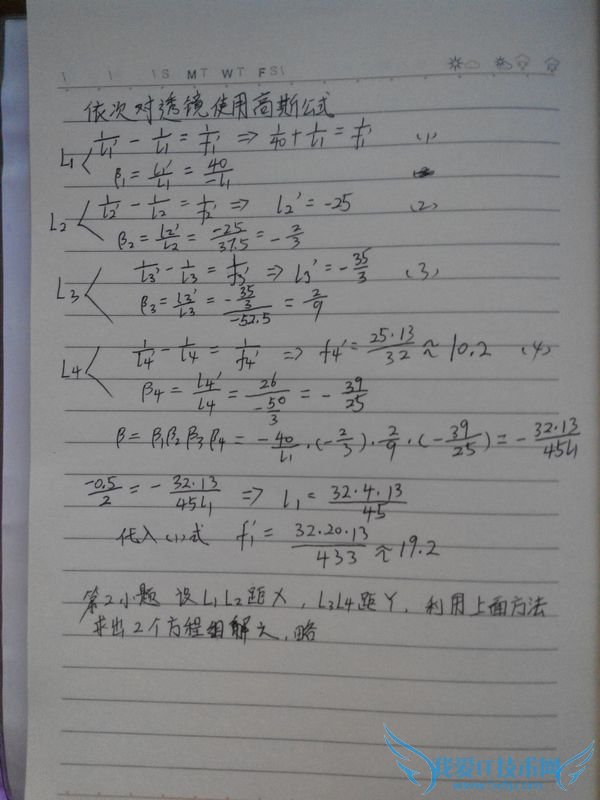 S M T W T F S
依次对透镜使用高斯公式
L₁ 1/l₁' - 1/l₁ = 1/f₁' ⇒ 1/40 + 1/l₁ = 1/f₁' (1)
β₁ = l₁'/l₁ = 40/-l₁
L₂ 1/l₂' - 1/l₂ = 1/f₂' ⇒ l₂' = -25 (2)
β₂ = l₂'/l₂ = -25/37.5 = -2/3
L₃ 1/l₃' - 1/l₃ = 1/f₃' ⇒ l₃' = -35/3 (3)
β₃ = l₃'/l₃ = (-35/3)/-52.5 = 2/9
L₄ 1/l₄' - 1/l₄ = 1/f₄' ⇒ f₄' = 25·13/32 ≈ 10.2 (4)
β₄ = l₄'/l₄ = 26/(-50/3) = -39/25
β = β₁β₂β₃β₄ = -40/l₁·(-2/3)·2/9·(-39/25) = -32·13/45l₁
-0.5/2 = -32·13/45l₁ ⇒ l₁ = 32·4·13/45
代入(1)式 f₁' = 32·20·13/433 ≈ 19.2
第2小题 设L₁L₂距X, L₃L₄距Y, 利用上面方法
求出2个方程组解之, 略
我爱IT技术网